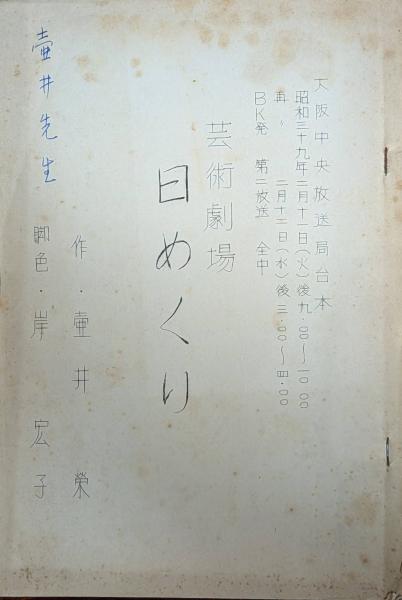 大阪中央放送局台本
昭和三十九年二月十一日(火)後九・〇〇~一〇・〇〇
再〃 二月十二日(水)後三・〇〇~四・〇〇
BK発 第二放送 全中
芸術劇場
日めくり
作・壷井栄
脚色・岸宏子
壷井先生